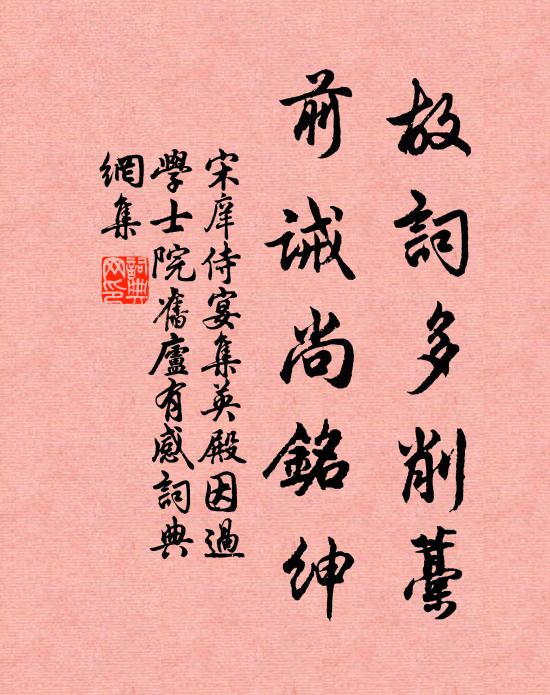 故詞多削藁
前誡尚銘紳
宋庠侍宴集英殿因過
學士院舊廬有感詞典
網集
詞典網印